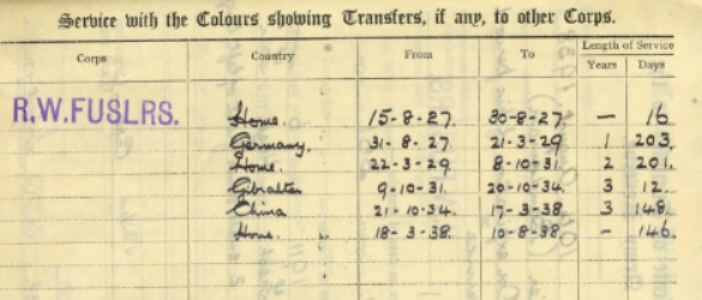 Service with the Colours showing Transfers, if any, to other Corps.
Corps Country From To Length of Service
Years Days
R.W.FUSLRS. Home. 15-8-27. 30-8-27. — 16
Germany. 31-8-27. 21-3-29. 1 203.
Home. 22-3-29. 8-10-31. 2 201.
Gibraltar 9-10-31. 20-10-34. 3 12.
China 21-10-34. 17-3-38. 3 148.
Home. 18-3-38. 10-8-38. - 146.